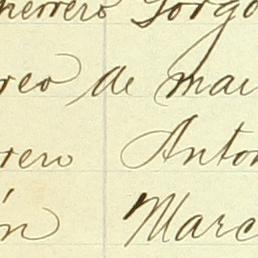 herrero Jorgo
reo de mai
rero Anton
ín Marc